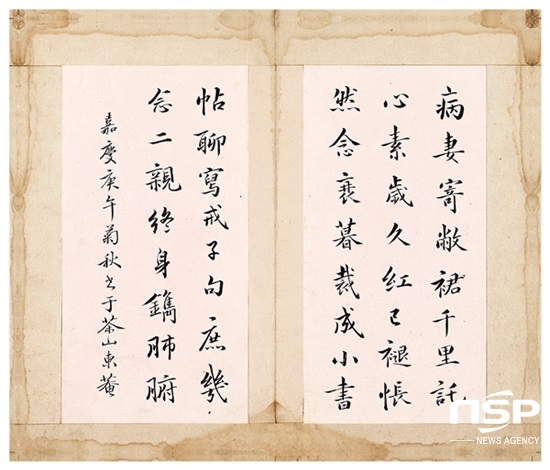 病妻寄敝裙千里託
心素歲久紅已褪悵
然念衰暮裁成小書
帖聊寫戒子句庶幾
念二親終身鐫肺腑
嘉慶庚午菊秋書于茶山東菴
NSP
NEWS AGENCY